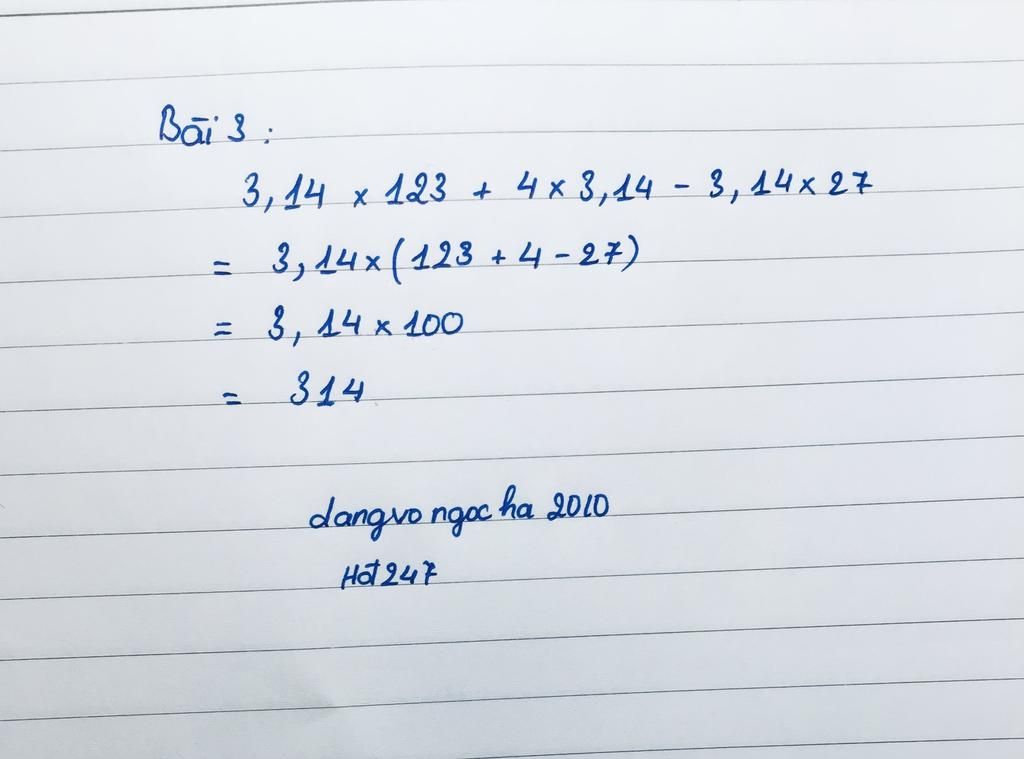 Bài 3 :
3,14 × 123 + 4 × 3,14 - 3,14 × 27
= 3,14 × (123 + 4 - 27)
= 3,14 × 100
= 314
dangvo ngoc ha 2010
Hot247